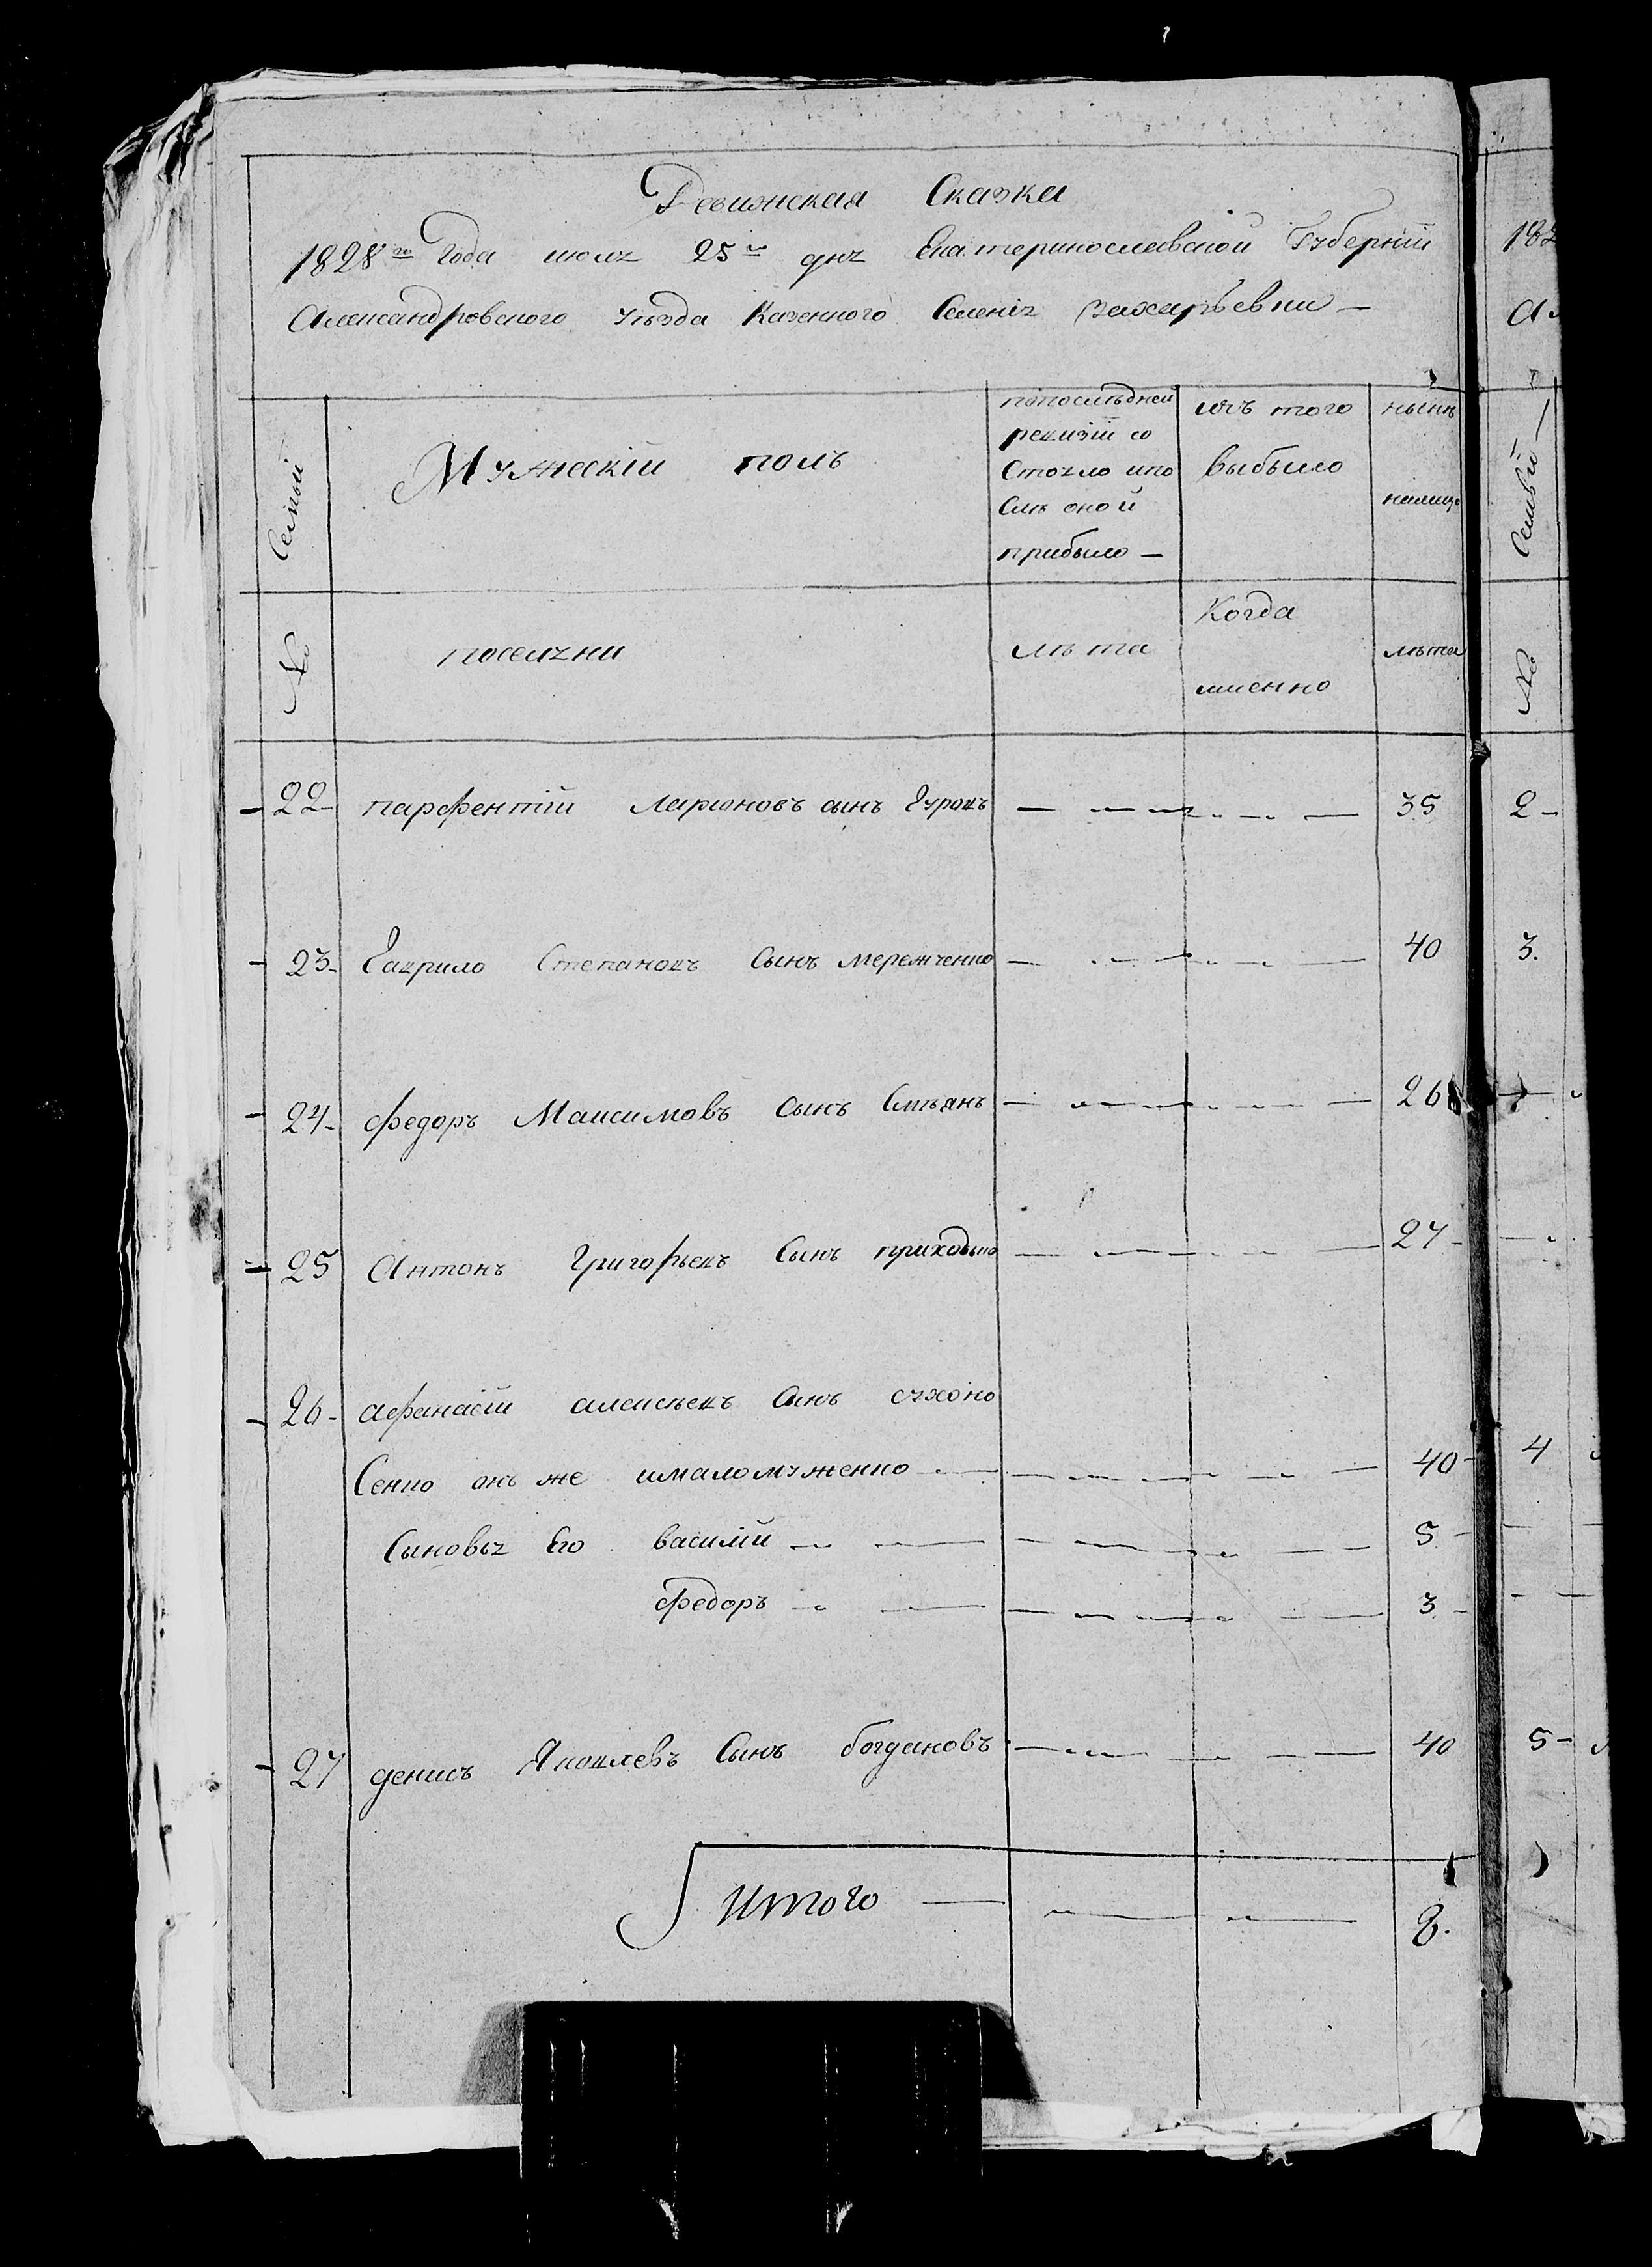 Ревижская Сказка
1828го Года июля 25го дня Екатеринославской Губернїи
Александровского Уѣзда Казенного Селенїя Захарьевки —
Семьи
Мужескїй полъ
попослѣдней
ревизїи со
стояло ипо
слѣ оной
прибыло —
изъ того
выбыло
нынѣ
налицо
№
поселяни
лѣта
Когда
именно
лѣта
22 парфентїй Ларионовъ сынъ Гуровъ 35
23 Гаврило Степановъ Сынъ мережченко 40
24 федоръ Максимовъ Сынъ 26
25 Антонъ Григорьевъ Сынъ приходько 27
26 афанасїй алексѣевъ Сынъ
Сенко онъ же ималомуженко 40
Сыновья Его василїй 5
федоръ 3
27 денисъ Яковлевъ Сынъ богдановъ 40
Итого 8.
182
Семьи —
№
2
3.
4
5